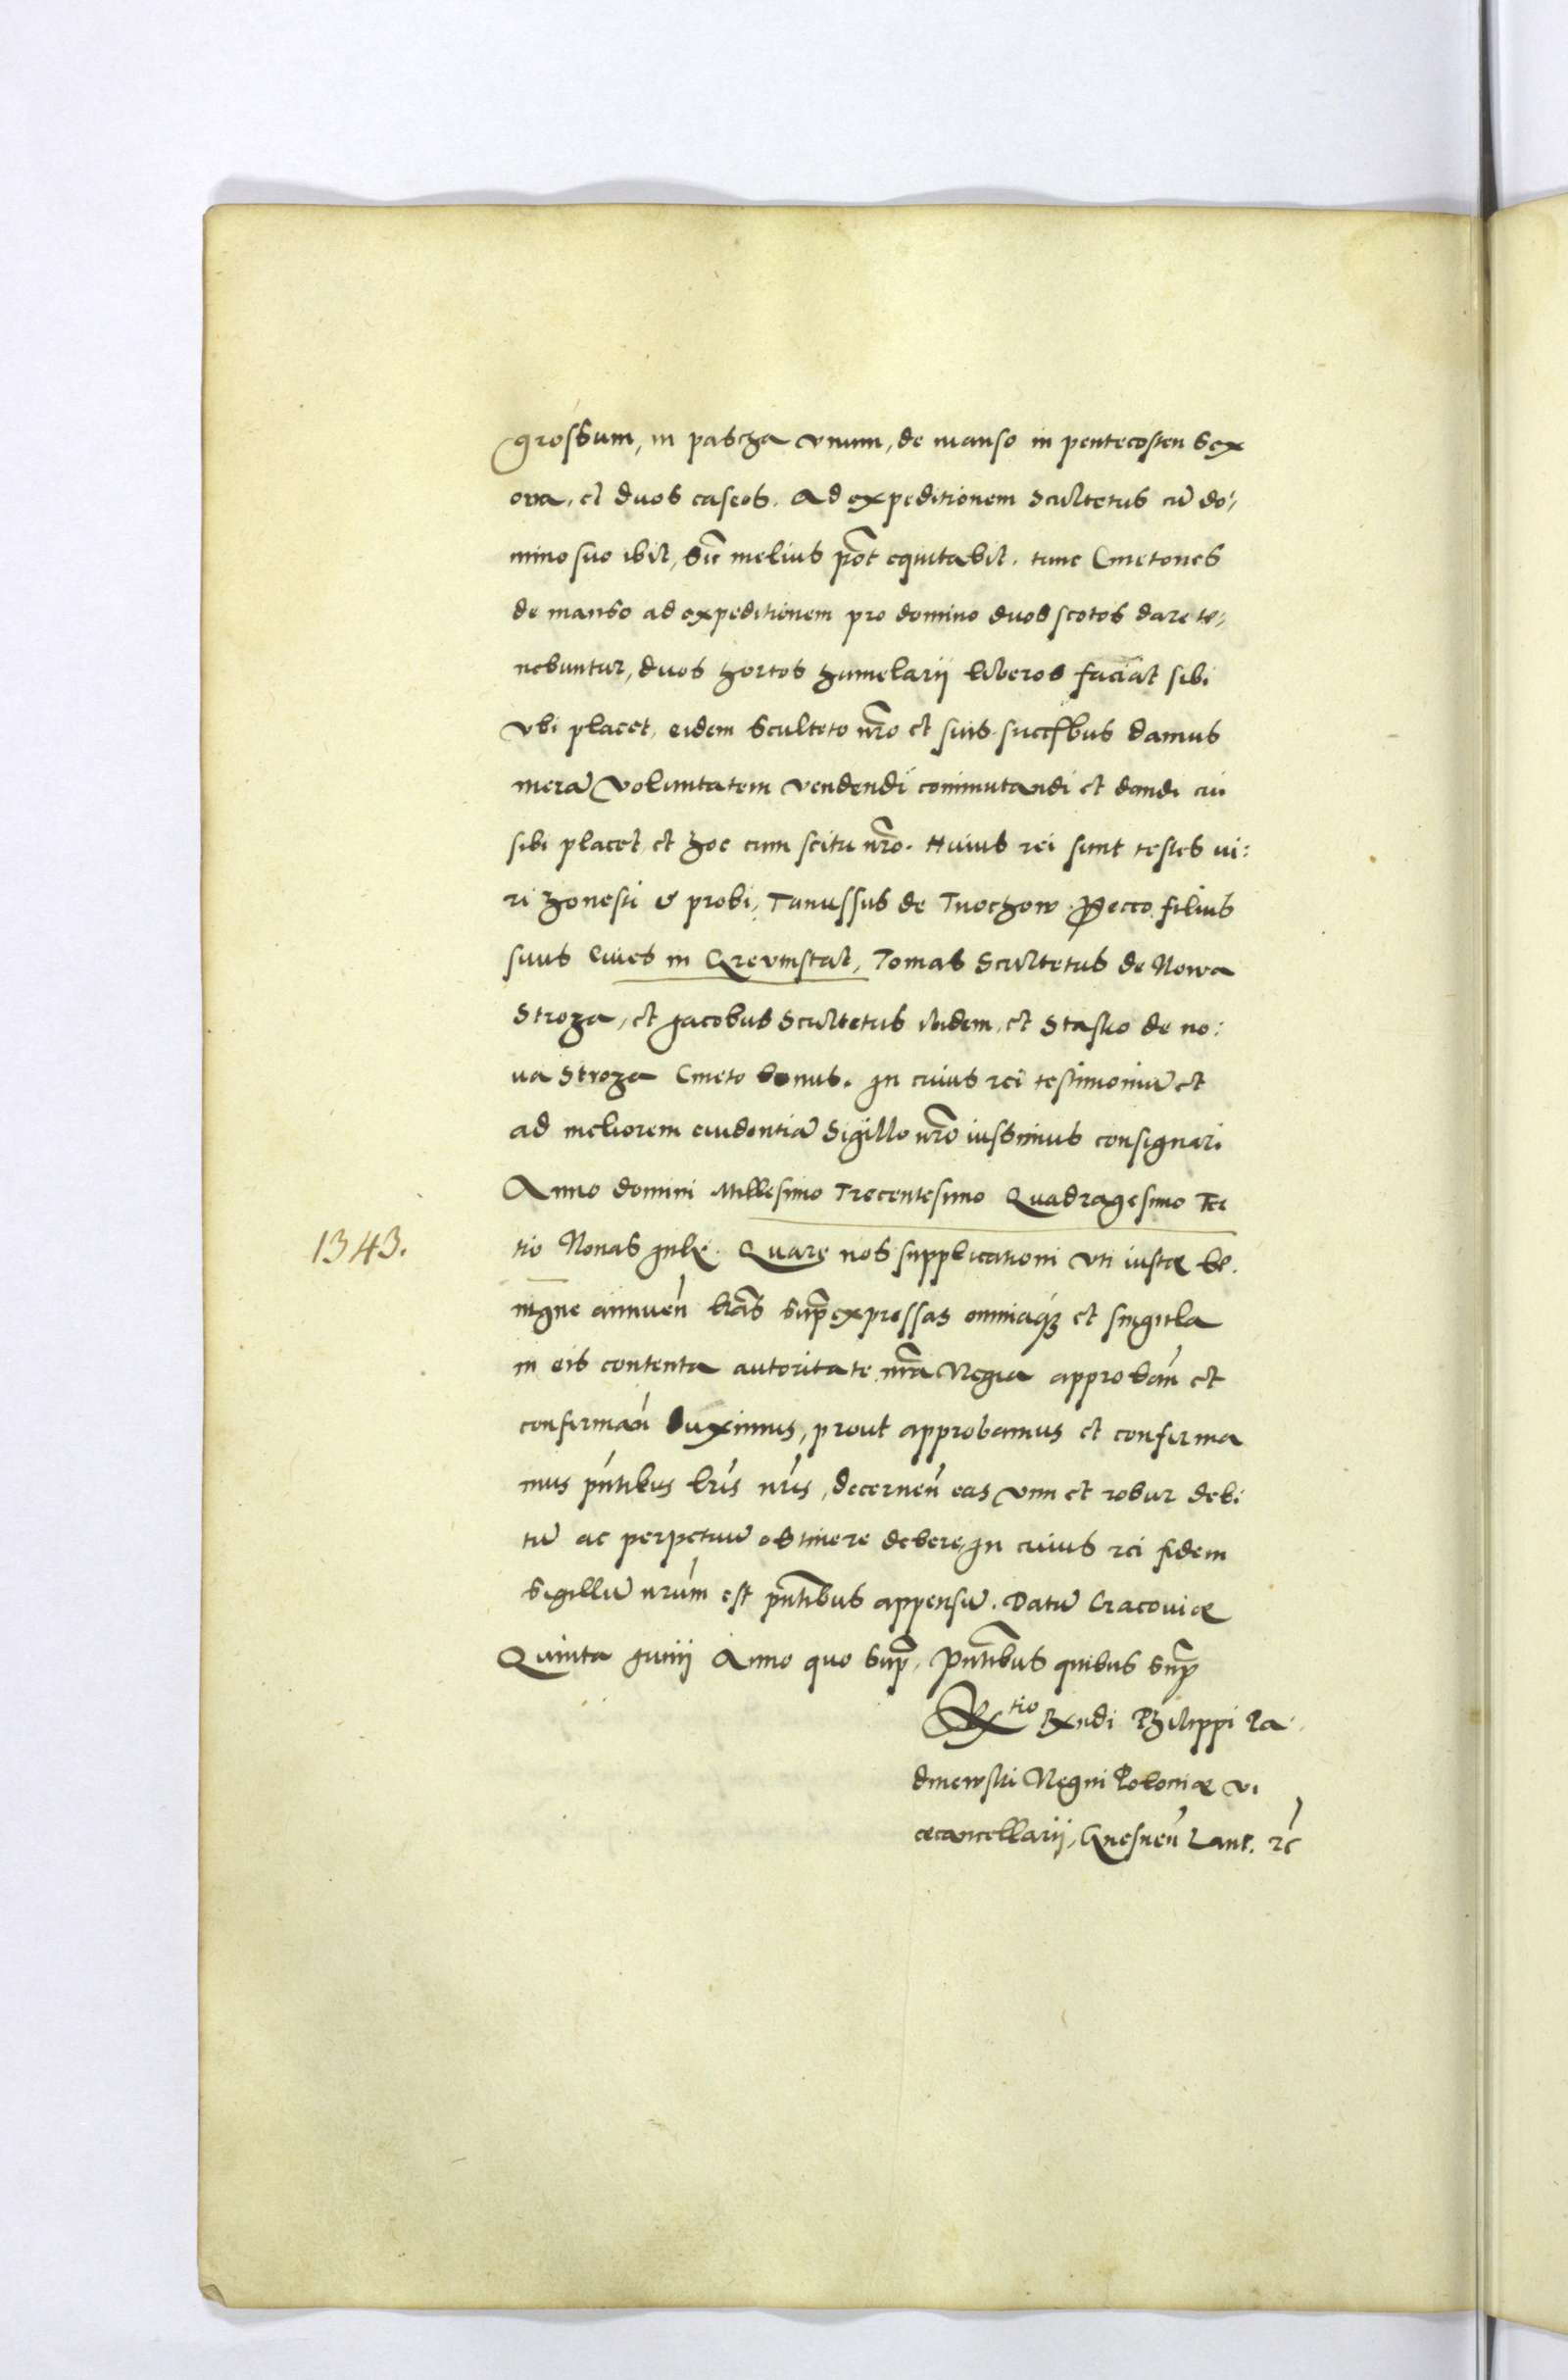 grossum, in pascha vnum, de manso in pentecosten sex
ova, et duos caseos. Ad expeditionem Scultetus cū do,
mino suo ibit, sic melius pōt equitabit. tunc Cmetones
de manso ad expeditionem pro domino duos scotos dare te,
nebuntur, duos hortos humelarij liberos faciat sibi
vbi placet, eidem Sculteto nrō et suis succesbus damus
merā voluntatem vendendi commutandi et dandi cui
sibi placet, et hoc cum scitu nrō. Huius rei sunt testes ui:
ri honesti & probi, Tanussus de Tuochow. Pecco filius
suus Ciues in Grevinstat, Tomas Scultetus de Nowa
Stroza, et Jacobus Scultetus ibidem, et Stasko de no:
ua Stroza Cmeto bonus. In cuius rei testimoniū et
ad meliorem euidentiā Sigillo nrō iussimus consignari
Anno domini Millesimo Trecentesimo Quadragesimo Ter
1343.
tio Nonas Julij. Quare nos supplicationi vti iustæ be.
nigne annuen̄ lrās sup̄ expressas omniaq3 et singula
in eis contenta autoritate nrā Regia approban̄ et
confirman̄ duximus, prout approbamus et confirma
mus pn̄tibus lrīs nrīs, decernen̄ eas vim et robur debi
tū ac perpetuū obtinere debere, In cuius rei fidem
Sigillū nrūm est pn̄tibus appensū. Datū Cracoviæ
Quinta Junij Anno quo sup̄, Pn̄tibus quibus sup̄
Rtio Rxndi Philippi Pa
dniewski Regni Poloniæ Vi
cecancellarij, Gnesnen̄ Lanc. rc̄